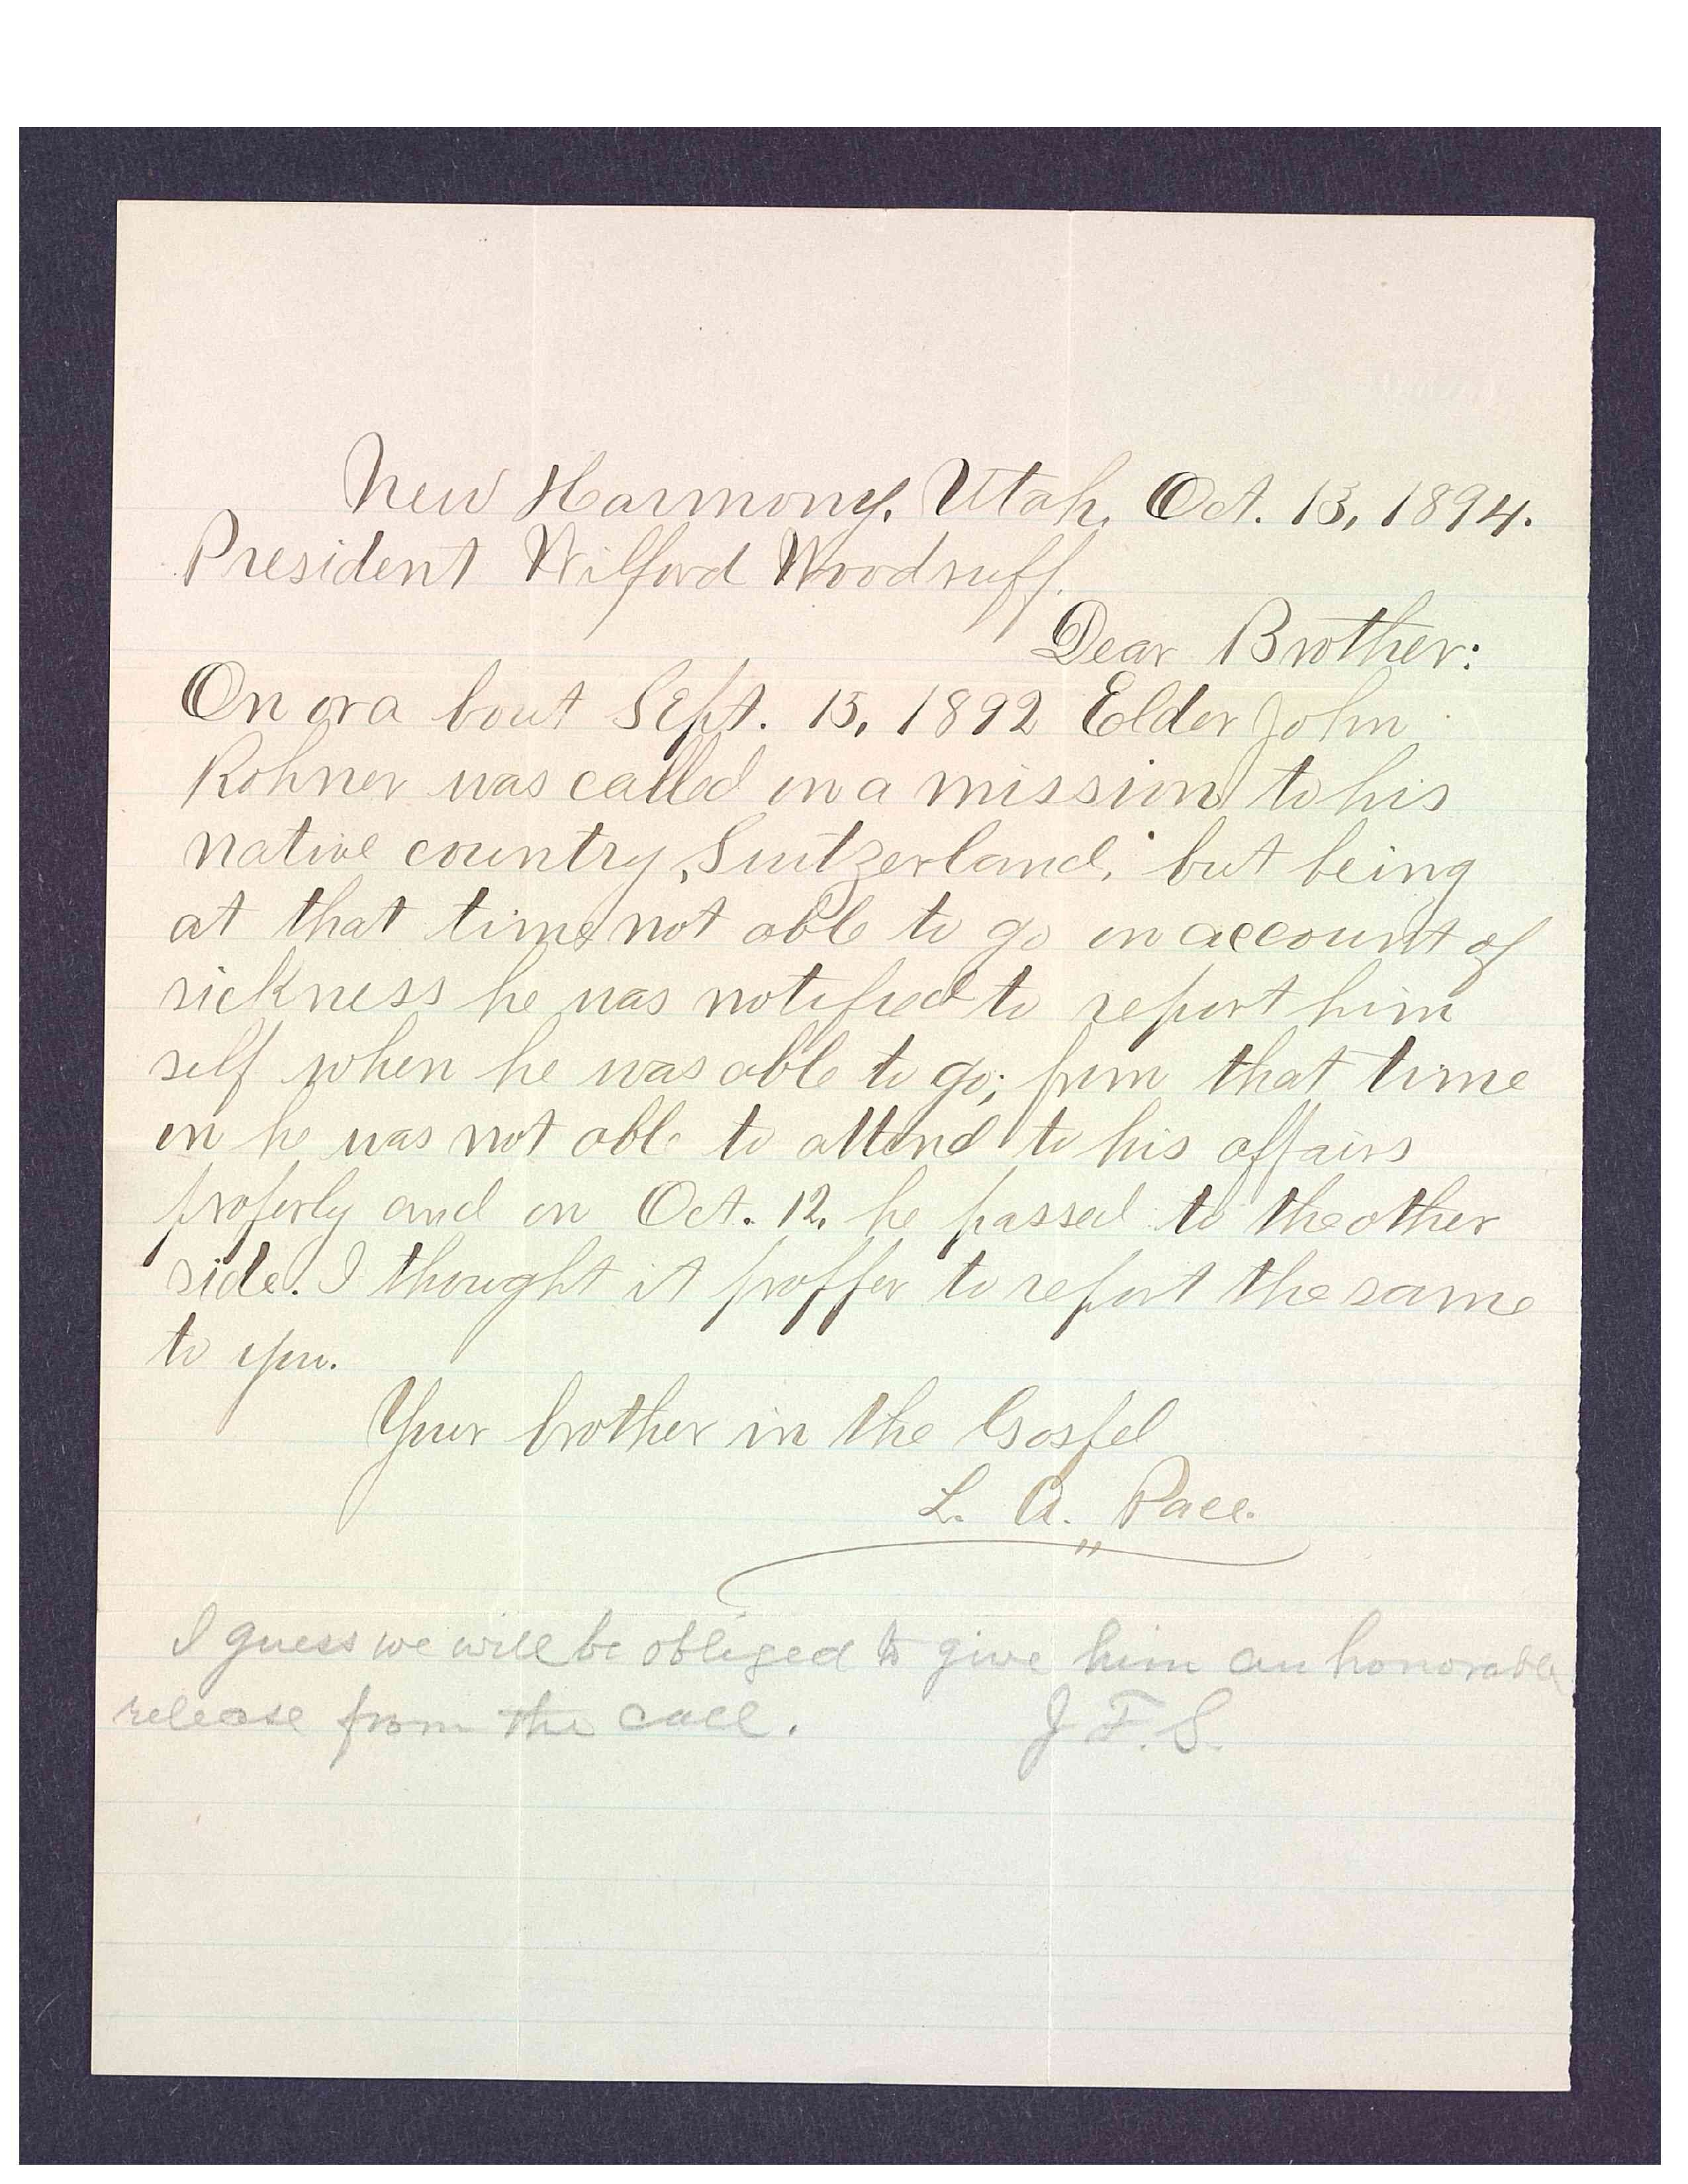 New Harmony, Utah, Oct. 15, 1894.
President Wilford Woodruff.
Dear Brother:
On or a bout Sept. 15, 1892 Elder John
Rohner was called on a mission to his
native country, Switzerland, but being
at that time not able to go on account of
sickness he was notified to report him
self when he was able to go; from that time
on he was not able to attend to his affairs
properly and on Oct. 12, he passed to the other
side. I thought it propper to report the same
to you.
Your brother in the Gospel
L. A. Pace.
I guess we will be obliged to give him an honorable
release from the call. J. F. S.